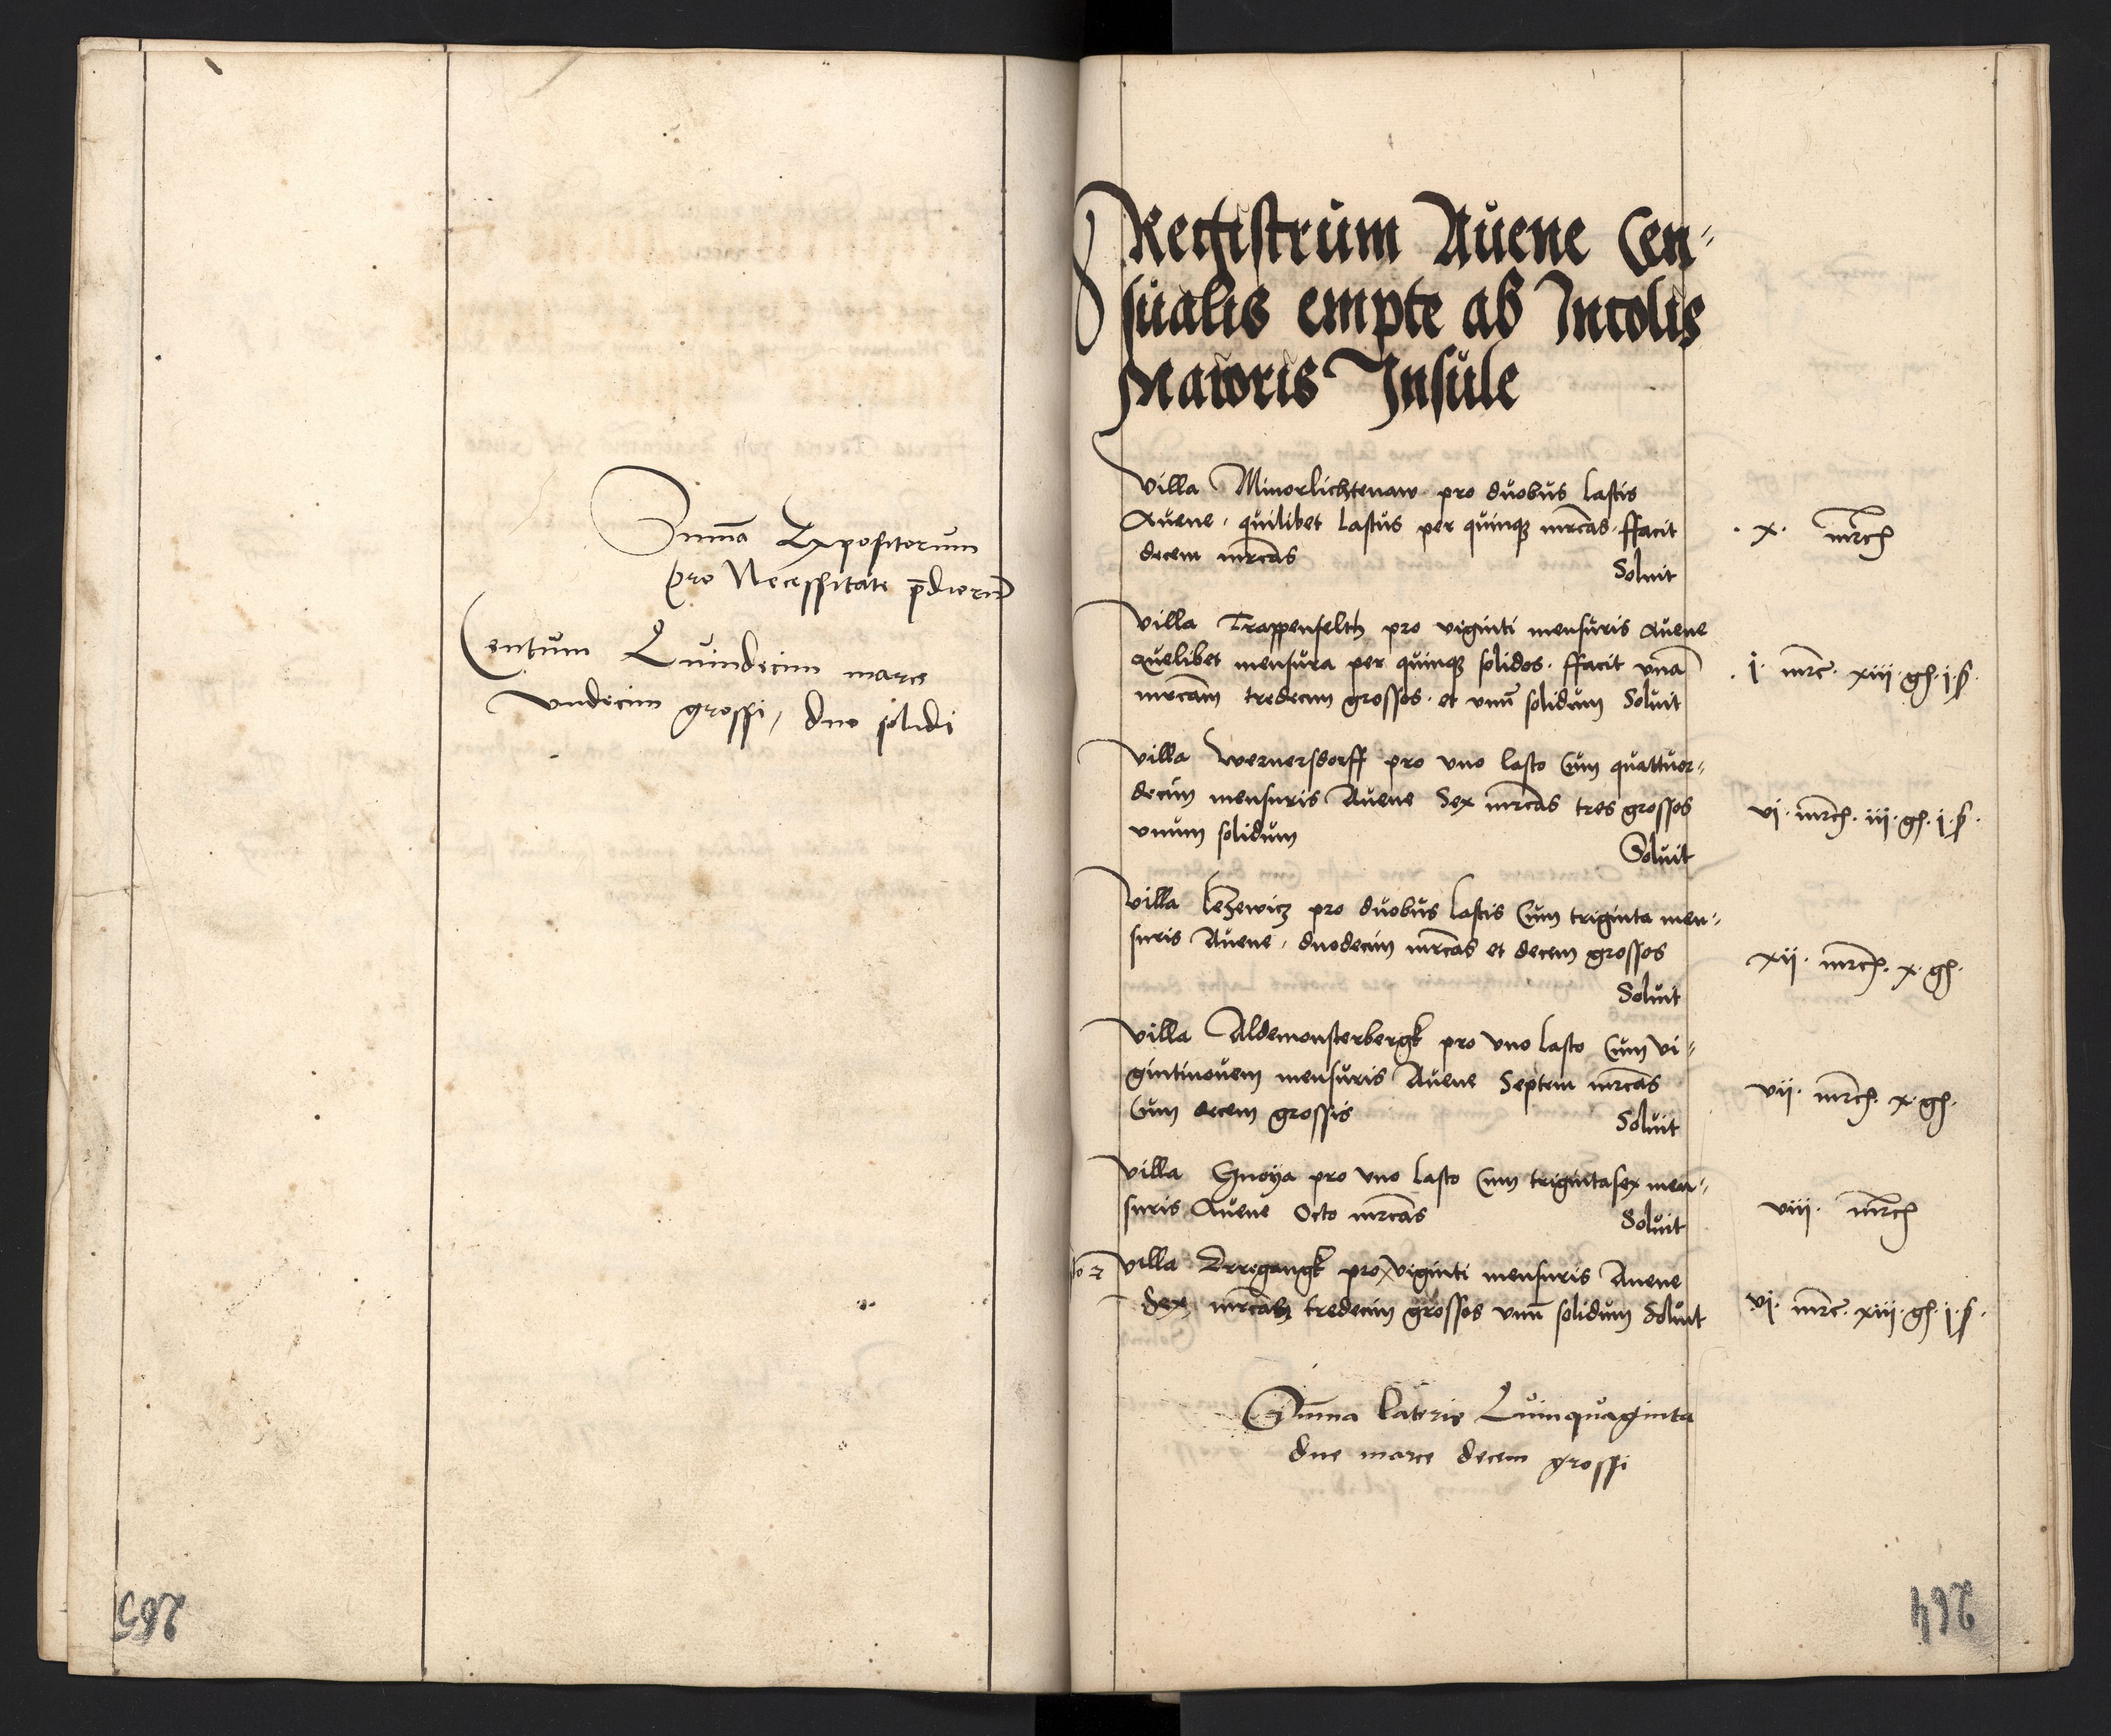 Suma Expositorum
pro Necessitate pdiorū
Centum Quindecim marce
vndecim grossi, duo solidi
265
Registrum Auene Cen-
sualis empte ab Incolis
Maioris Insule
Villa Minorlichtenaw pro duobus lastis
Auene, quilibet lastus per quinque mrcas ffacit
decem mrcas
Soluit
· x · mrc
Villa Trappenfeltz pro viginti mensuris Auene
quelibet mensura per quinque solidos ffacit vna
mrcam tredecim grossos et vnū solidum Soluit
· i · mrc · xiii · g · i · s ·
Villa Wernersdorff pro vno lasto Cum quattuor-
decim mensuris Auene Sex mrcas tres grossos
vnum solidum
Soluit
vi · mrc · iii · g · i · s ·
Villa Lezewicz pro duobus lastis Cum triginta men-
suris Auene, duodecim mrcas et decem grossos
Soluit
xii · mrc · x · g ·
Villa Aldemonsterbergk pro vno lasto Cum vi-
gintinouem mensuris Auene Septem mrcas
Cum decem grossis
Soluit
vii · mrc · x · g ·
Villa Gnoya pro vno lasto Cum trigintasex men-
suris Auene Octo mrcas
Soluit
viii · mrc
Villa Irregangk pro viginti mensuris Auene
Sex mrcas tredecim grossos vnū solidum Soluit
vi · mrc · xiii · g · i · s ·
Suma lateris Quinquaginta
due marce decem grossi
264